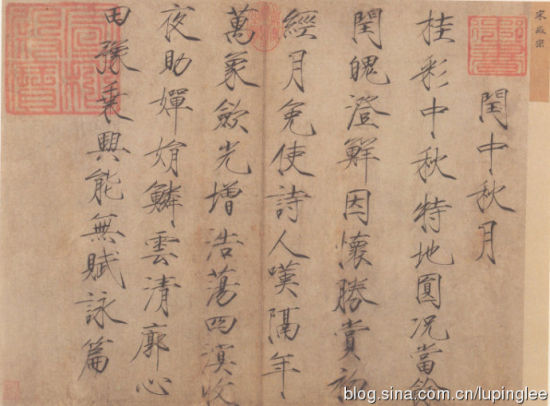 宋徽宗
御書
閏中秋月
桂彩中秋特地圓況當餘
閏魄澄鮮因懷勝賞初
經月免使詩人嘆隔年
萬象斂光增浩蕩四溟收
夜助嬋娟鱗雲清廓心
田豫乘興能無賦詠篇
blog.sina.com.cn/lupinglee